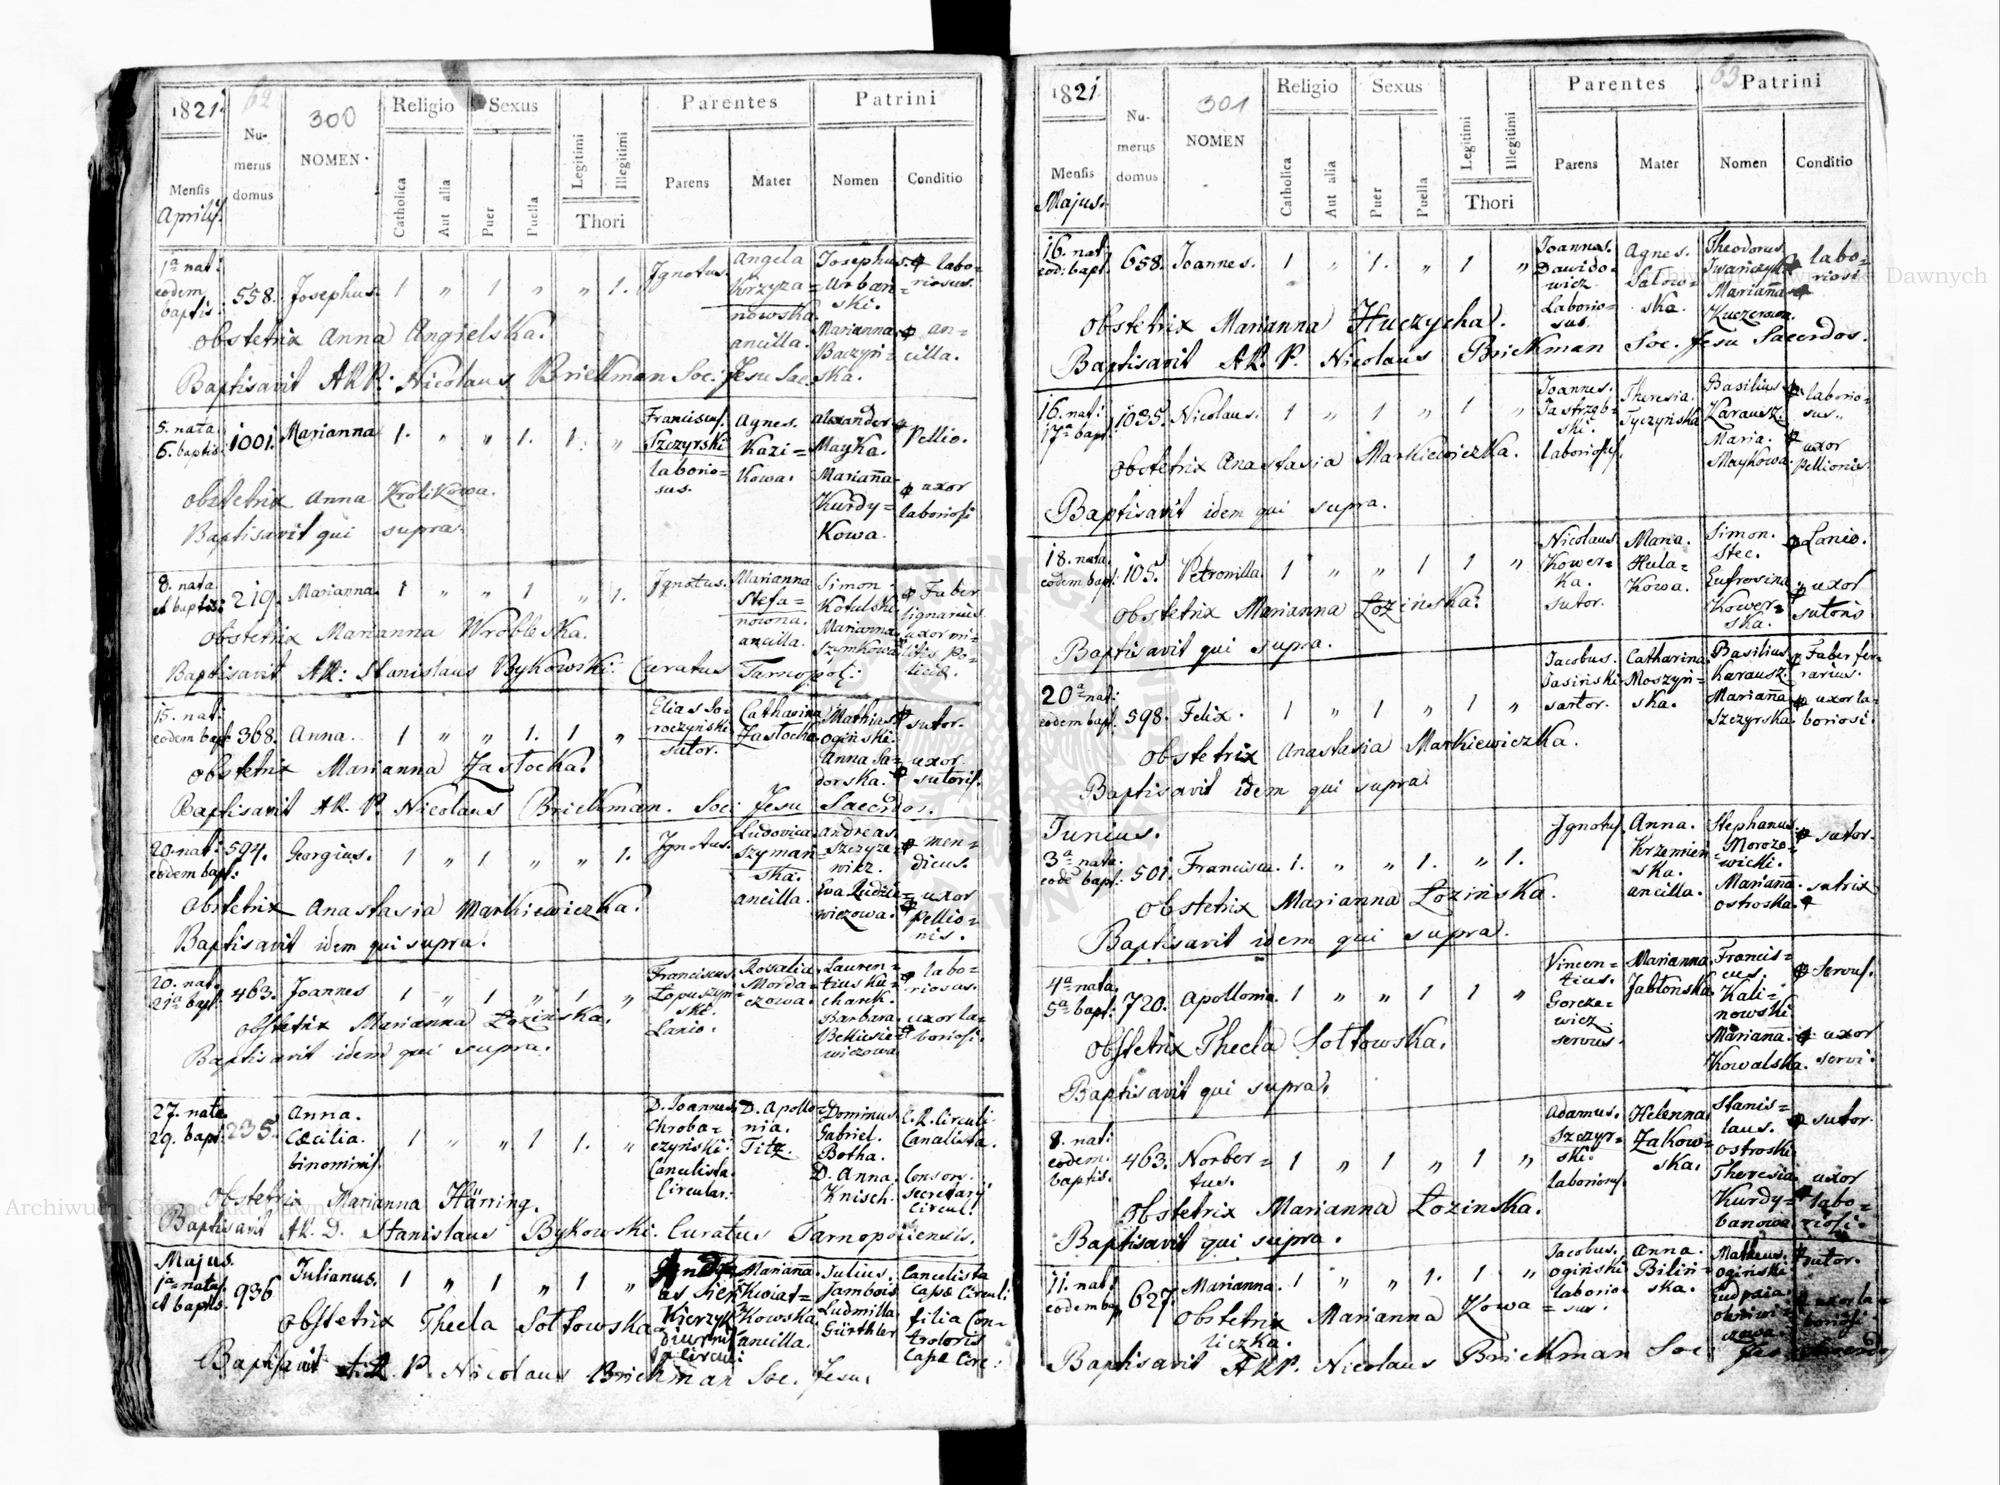 1821.
62
Numerus domus
300
NOMEN.
Religio
Sexus
Legitimi
Illegitimi
Thori
Parentes
Patrini
Mensis
Aprilis.
Catholica
Aut alia
Puer
Puella
Parens
Mater
Nomen
Conditio
1ª nat: eodem baptis: 558. Josephus. 1 " 1 " " 1. Ignotus. Angela Krzyzanowska ancilla. Josephus Urbanski. laboriosus. Marianna Baczynska. ancilla.
Obstetrix Anna Angielska.
Baptisavit ARP: Nicolaus Briekman Soc: Jesu Sac.
5. nata 6. baptis: 1001. Marianna 1. " " 1. 1. " Franciscus. Szczyrski laboriosus. Agnes. Kazikowa. Alexander Mayka. Pellio. Marianna Kurdykowa. uxor laboriosi
Obstetrix Anna Krolikowa.
Baptisavit qui supra.
8. nata et baptis: 219. Marianna. 1 " " 1 " 1. Ignotus. Marianna Stefanowna. ancilla. Simon Kotulski Faber lignarius. Marianna Szymkowa uxor militis policiæ.
Obstetrix Marianna Wrobleska.
Baptisavit AR: Stanislaus Bykowski Curatus Tarnopol:
15. nat: eodem bapt: 368. Anna. 1 " " 1. 1 " Elias sutor. Catharina Zastocka. Mathias Oginski. sutor. Anna Sadorska. uxor sutoris.
Obstetrix Marianna Zastocka.
Baptisavit AR. P. Nicolaus Briekman. Soc: Jesu Sacerdos.
20. nat: eodem bapt: 594. Georgius. 1 " 1 " " 1. Ignotus. Ludovica Szymanska. ancilla. Andreas Szczyzewicz. mendicus. Eva uxor Pellionis.
Obstetrix Anastasia Markiewiczka.
Baptisavit idem qui supra.
20. nat. 21ª bapt: 463. Joannes 1 " 1 " 1. " Franciscus. Łopuszynski. Lanio. Rosalia Mordaczowa. Laurentius Kucharek. laboriosus. Barbara uxor laboriosi.
Obstetrix Marianna Łozinska.
Baptisavit idem qui supra.
27. nata. 29. bapt: 235. Anna. Cæcilia. binominis. 1 " " 1 1. " D. Joannes Chrobaczyński Cancelista. Circular. D. Apollonia. Titz. Dominus Gabriel. Botha. C. R. Circuli Canalista. D. Anna Knisch. Consors. Secretarÿ Circul:
Obstetrix Marianna Härring.
Baptisavit AR. D. Stanislaus Bykowski. Curatus Tarnopoliensis.
Majus. 1ª natus. et baptis: 936 Julianus. 1 " 1 " 1 " Mariana Kwiatkowska ancilla. Julius. Jambois Cancelista Capæ Circuli Ludmilla Gürthler filia Controloris Capæ Circ:
Obstetrix Thecla Sołtowska
Baptisavit A.R. P. Nicolaus Briekman Soc. Jesu
1821.
63
Numerus domus
301
NOMEN
Religio
Sexus
Legitimi
Illegitimi
Thori
Parentes
Patrini
Mensis
Majus.
Catholica
Aut alia
Puer
Puella
Parens
Mater
Nomen
Conditio
16. nat: eod: bapt: 658. Joannes. 1 " 1. " 1 " Joannes. Dawidowicz Laboriosus. Agnes. Satowska. Theodorus Iwańczyk laboriosi Marianna Kuczerowa.
Obstetrix Marianna Huczycha.
Baptisavit AR. P. Nicolaus Briekman Soc. Jesu Sacerdos.
16. nat: 17ª bapt: 1035. Nicolaus. 1 " 1 " 1 " Joannes. Jastrzębski. laboriosus. Theresia. Tyczyńska Basilius Karausz. laboriosus. Maria. Maykowa. uxor Pellionis.
Obstetrix Anastasia Markiewiczka.
Baptisavit idem qui supra.
18. nata. eodem bapt: 105. Petronilla. 1 " " 1 1 " Nicolaus Kowerka. sutor. Maria. Hulakowa. Simon. Stec. Lanio. Eufrosina Kowerska. uxor sutoris
Obstetrix Marianna Łozińska.
Baptisavit qui supra.
20ª nat: eodem bapt: 598. Felix. 1 " 1 " 1 " Jacobus. Jasiński sartor. Catharina Moszyńska. Basilius Karausz. Faber ferrarius. Marianna Szczyrska. uxor laboriosi.
Obstetrix Anastasia Markiewiczka.
Baptisavit idem qui supra.
Junius. 3ª nata. eodē bapt: 501. Francisca. 1. " " 1. " 1. Ignotus. Anna. Krzemienska. ancilla. Stephanus Morozewicki. sutor. Marianna. Ostroska. sutrix
Obstetrix Marianna Łozinska.
Baptisavit idem qui supra.
4ª nata. 5ª bapt: 720. Apollonia. 1 " " 1 1 " Vincentius. Gorczewicz. servus. Marianna Jabłonska. Franciscus. Kalinowski. servus. Marianna. Kowalska. uxor servi.
Obstetrix Thecla Sołtowska.
Baptisavit qui supra.
8. nat: eodem. baptis. 463. Norbertus. 1 " 1 " 1 " Adamus. Szczyrski. laboriosus. Helenna Zakowska. Stanislaus. Ostroski. sutor. Theresia Kurdybanowa. uxor laboriosi.
Obstetrix Marianna Łozinska.
Baptisavit qui supra.
11. nat: eodem bap: 627. Marianna. 1 " " 1. 1 " Jacobus. Ogiński laboriosus. Anna. Bilińska. Matheus. Ogiński sutor. uxor laboriosi.
Obstetrix Marianna Kowaliczka.
Baptisavit ARP. Nicolaus Briekman Soc:
Archiwum Główne Akt Dawnych
Archiwum Główne Akt Dawnych